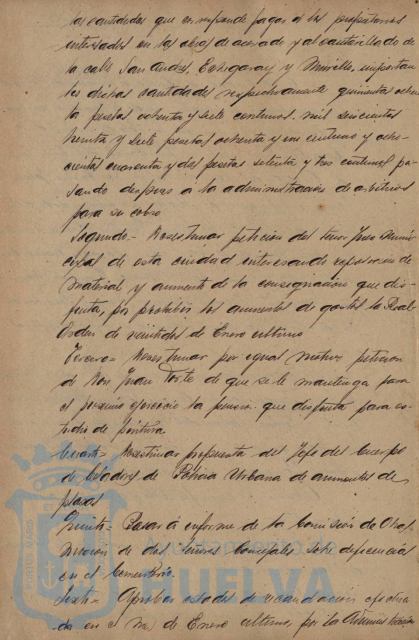 las cantidades que corresponde pagar a los propietarios
interesados en las obras de acerado y alcantarillado de
la calle San Andres, Echegaray y Murillo, importan
tes dichas cantidades respectivamente quinientas ochen
ta pesetas ochenta y siete centimos. mil seiscientas
treinta y siete pesetas ochenta y un centimo y ocho
cientas cuarenta y dos pesetas setenta y tres centimos pa
sando despues a la administración de arbitrios
para su cobro
Segundo.- Desestimar petición del señor Juez Munici
de esta ciudad interesando reposicion de
material y aumento de la consignación que dis
fruta, por prohibir los aumentos de gastos la Real
Orden de veintidos de Enero ultimo
Tercero- Desestimar por igual motivo peticion
de Don Juan de que se le mantenga para
el proximo ejercicio la pension que disfruta para es
tudio de pintura.
Cuarto- Desestimar propuesta del Jefe del Cuerpo
de Celadores de Policia Urbana de aumentos de
plazas
Quinto- Pasar á informe de la Comisión de Obras
mocion de dos señores Concejales sobre deficiencias
en el Cementerio.
Sexto- Aprobar estados de recaudación efectua
da en el mes de Enero ultimo, por la
HUELVA